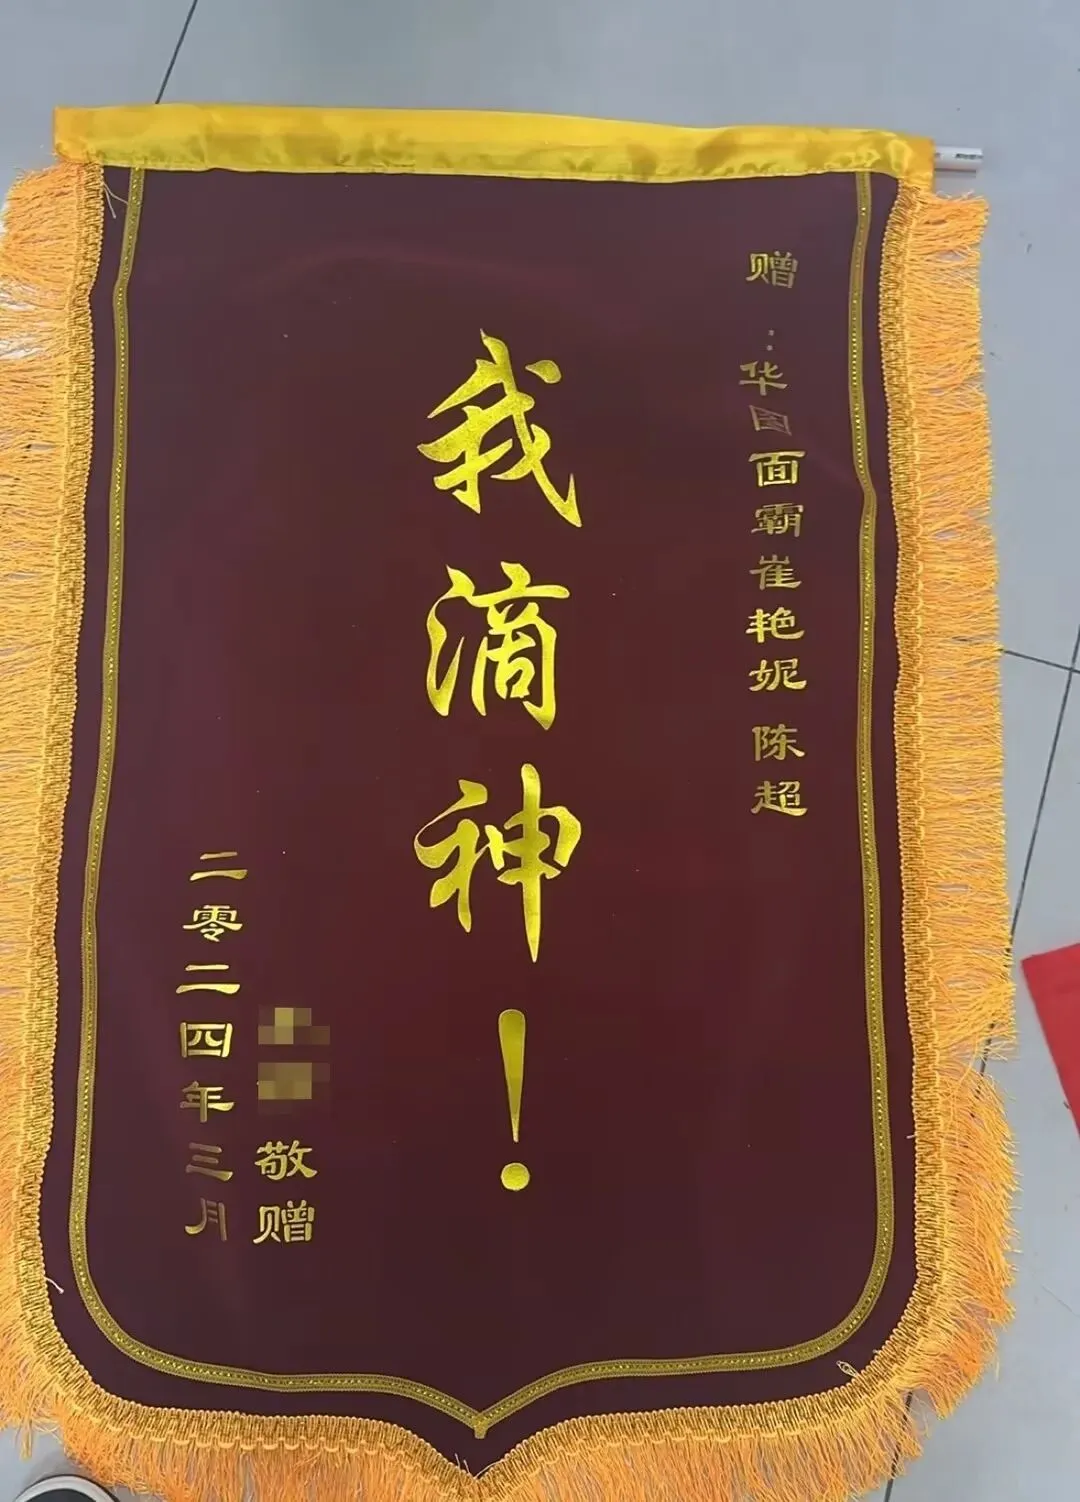 赠：华图面霸崔艳妮 陈超
我滴神！
敬赠
二零二四年三月